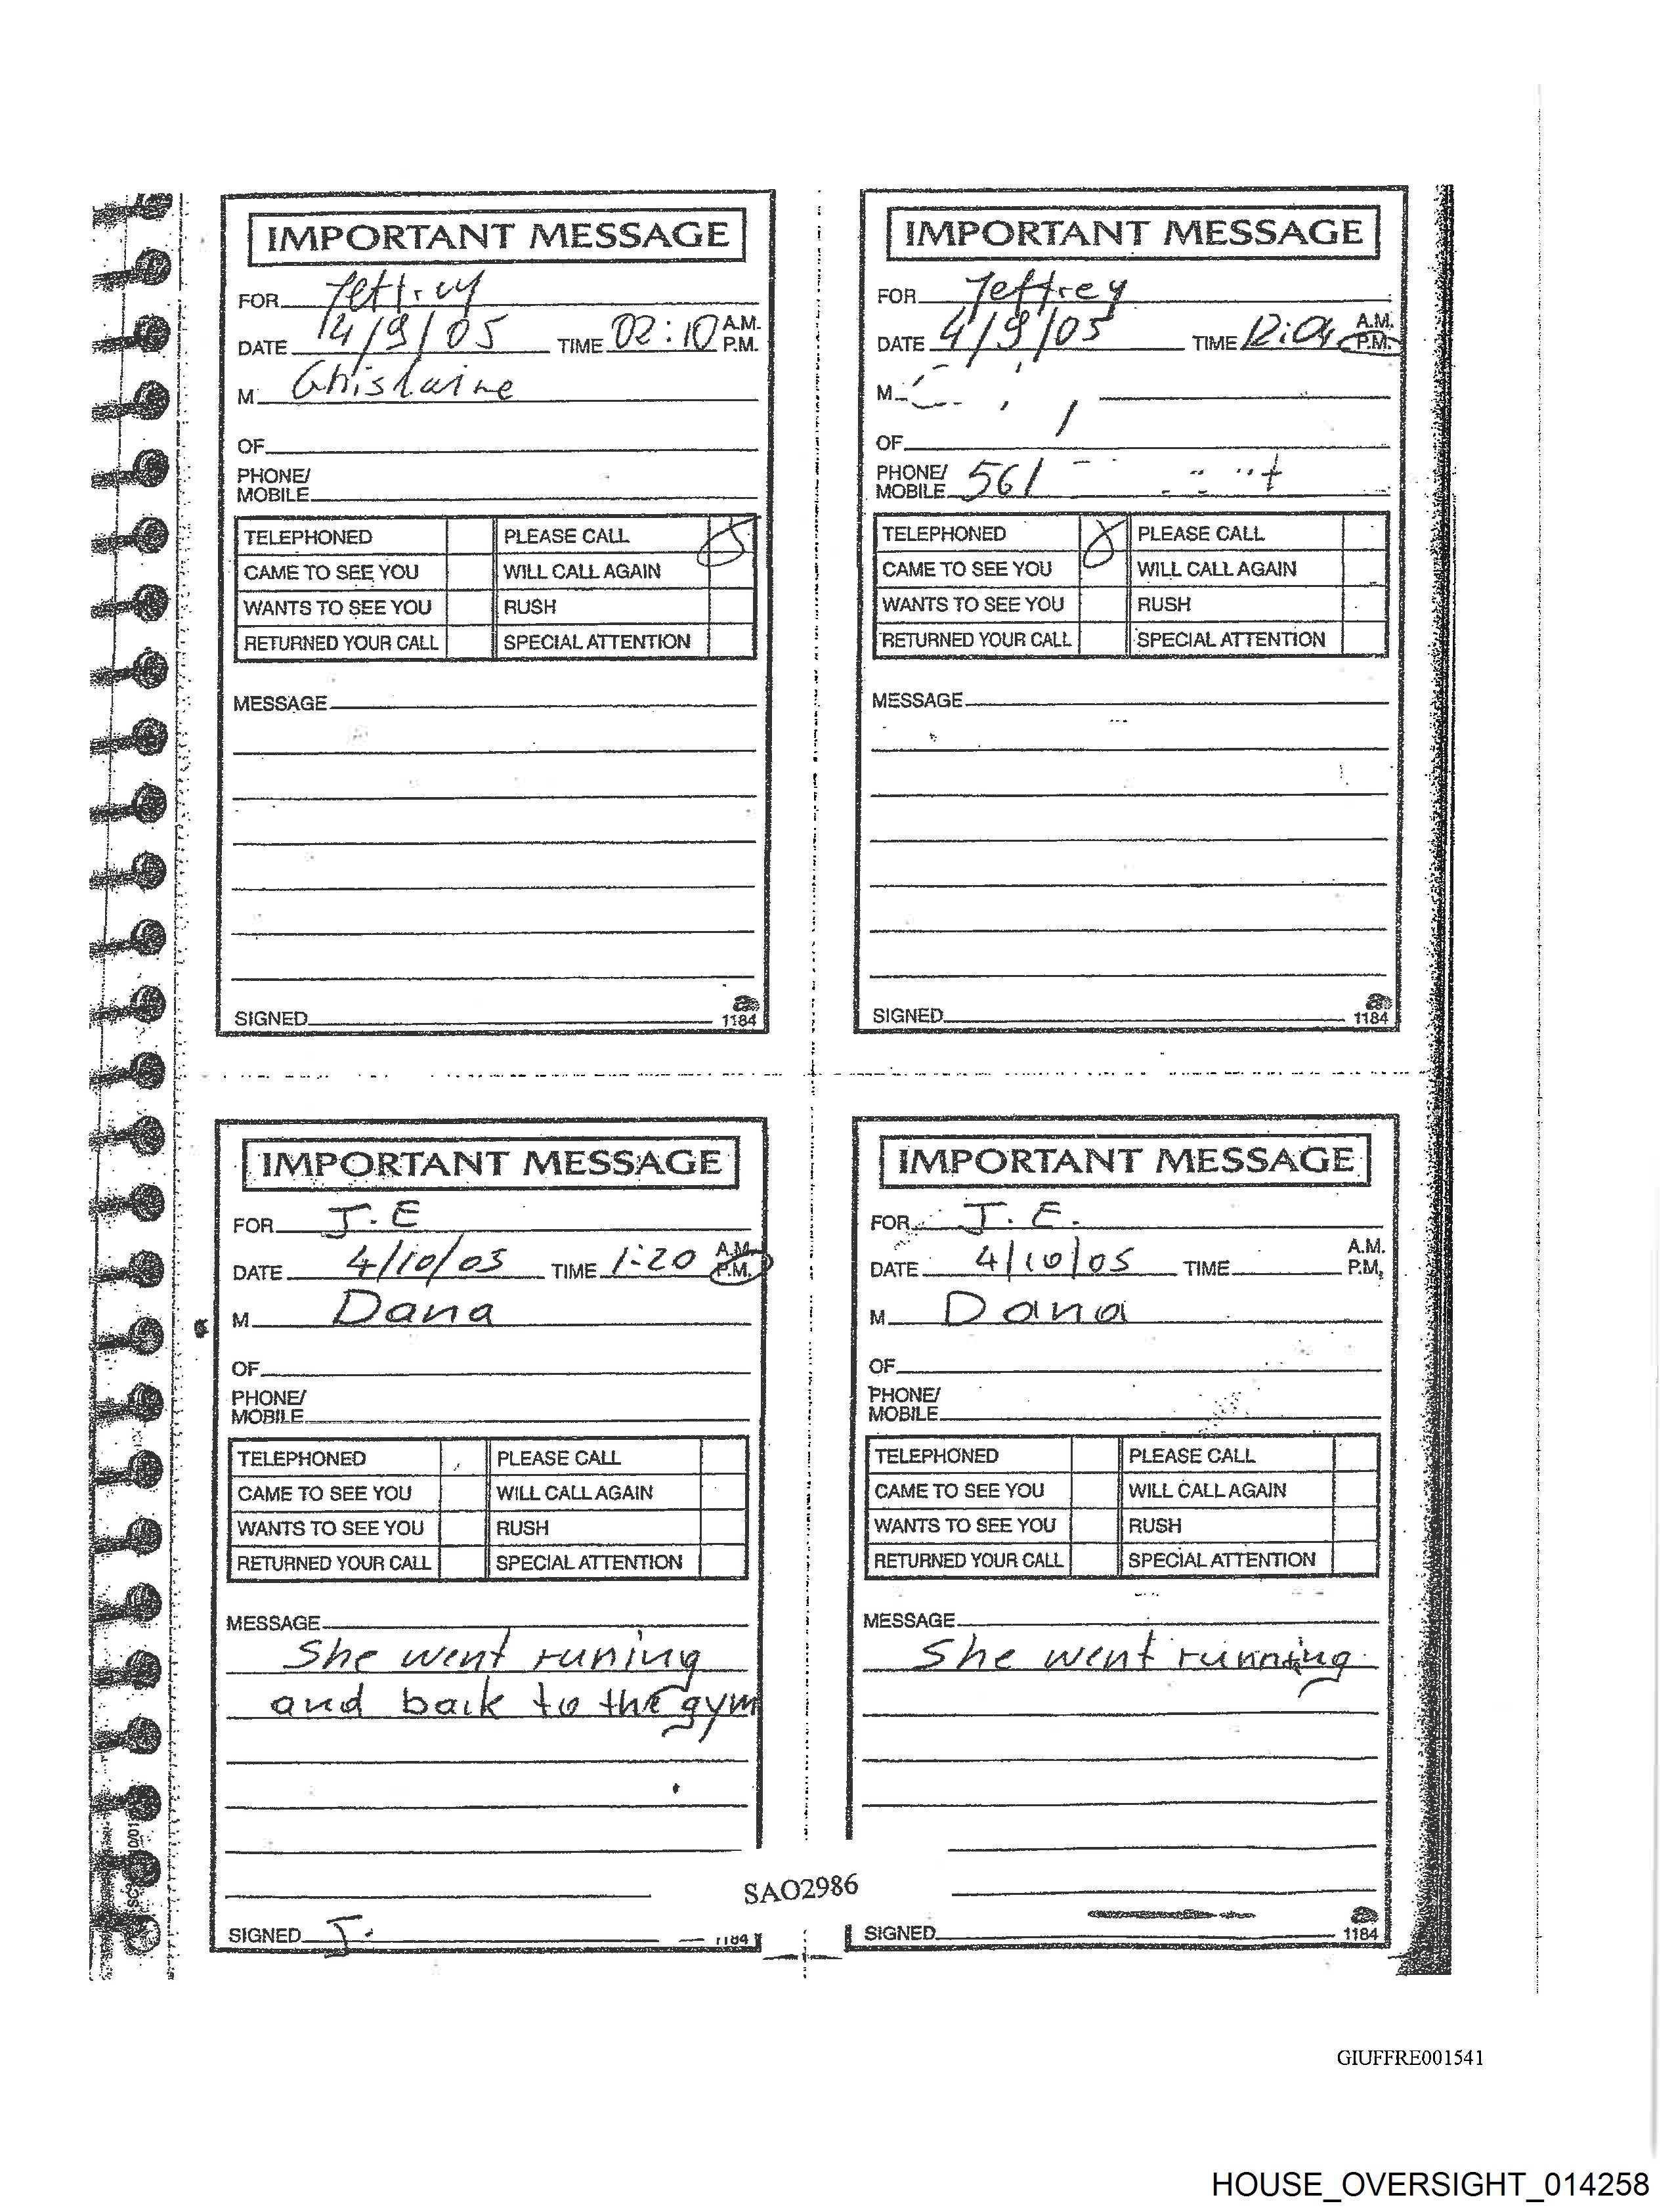 IMPORTANT MESSAGE
FOR Jeffrey
DATE 4/9/05 TIME 02:10 A.M. P.M.
M Ghislaine
OF
PHONE/
MOBILE
TELEPHONED PLEASE CALL
CAME TO SEE YOU WILL CALL AGAIN
WANTS TO SEE YOU RUSH
RETURNED YOUR CALL SPECIAL ATTENTION
MESSAGE
SIGNED
1184
IMPORTANT MESSAGE
FOR Jeffrey
DATE 4/9/05 TIME 12:04 A.M. P.M.
M
OF
PHONE/
MOBILE 561
TELEPHONED PLEASE CALL
CAME TO SEE YOU WILL CALL AGAIN
WANTS TO SEE YOU RUSH
RETURNED YOUR CALL SPECIAL ATTENTION
MESSAGE
SIGNED
1184
IMPORTANT MESSAGE
FOR J.E
DATE 4/10/05 TIME 1:20 A.M. P.M.
M Dana
OF
PHONE/
MOBILE
TELEPHONED PLEASE CALL
CAME TO SEE YOU WILL CALL AGAIN
WANTS TO SEE YOU RUSH
RETURNED YOUR CALL SPECIAL ATTENTION
MESSAGE
She went runing
and back to the gym
SIGNED J.
1184
IMPORTANT MESSAGE
FOR J.E.
DATE 4/10/05 TIME A.M. P.M.
M Dana
OF
PHONE/
MOBILE
TELEPHONED PLEASE CALL
CAME TO SEE YOU WILL CALL AGAIN
WANTS TO SEE YOU RUSH
RETURNED YOUR CALL SPECIAL ATTENTION
MESSAGE
She went running
SIGNED
1184
SAO2986
GIUFFRE001541
HOUSE_OVERSIGHT_014258